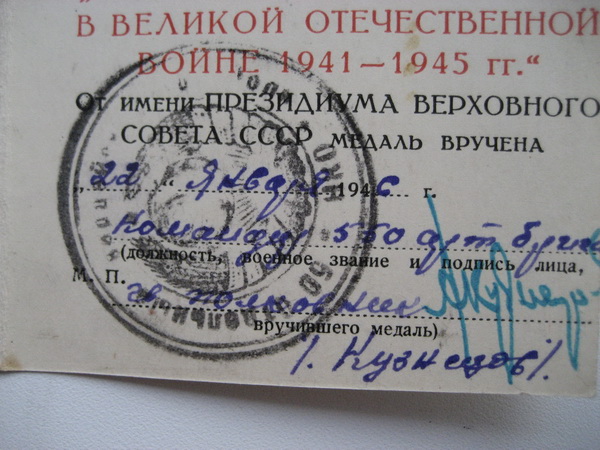 В ВЕЛИКОЙ ОТЕЧЕСТВЕННОЙ
ВОЙНЕ 1941—1945 гг.“
От имени ПРЕЗИДИУМА ВЕРХОВНОГО
СОВЕТА СССР МЕДАЛЬ ВРУЧЕНА
„22“ Января 1946 г.
Командир 550 арт.
(должность, военное звание и подпись лица,
М. П.
гв полковник
вручившего медаль)
/. Кузнецов/.